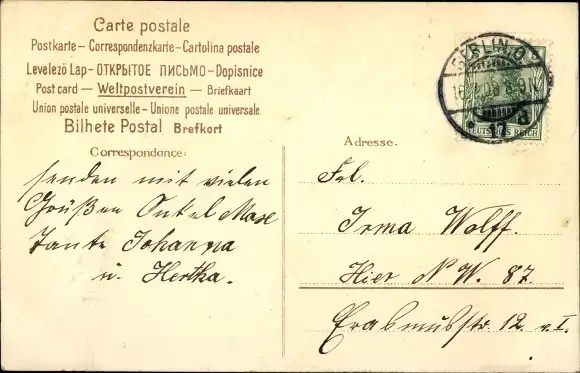 Carte postale
Postkarte – Correspondenzkarte – Cartolina postale
Levelező Lap – ОТКРЫТОЕ ПИСЬМО – Dopisnice
Post card — Weltpostverein — Briefkaart
Union postale universelle – Unione postale universale
Bilhete Postal Brefkort
Correspondance:
senden mit vielen
Grüßen Onkel Max
Tante Johanna
u. Hertha.
BERLIN
8-9N
17 a
DEUTSCHES REICH
Adresse.
Frl.
Irma Wolff.
Hier N W. 87.
Erasmusstr. 12. v. I.